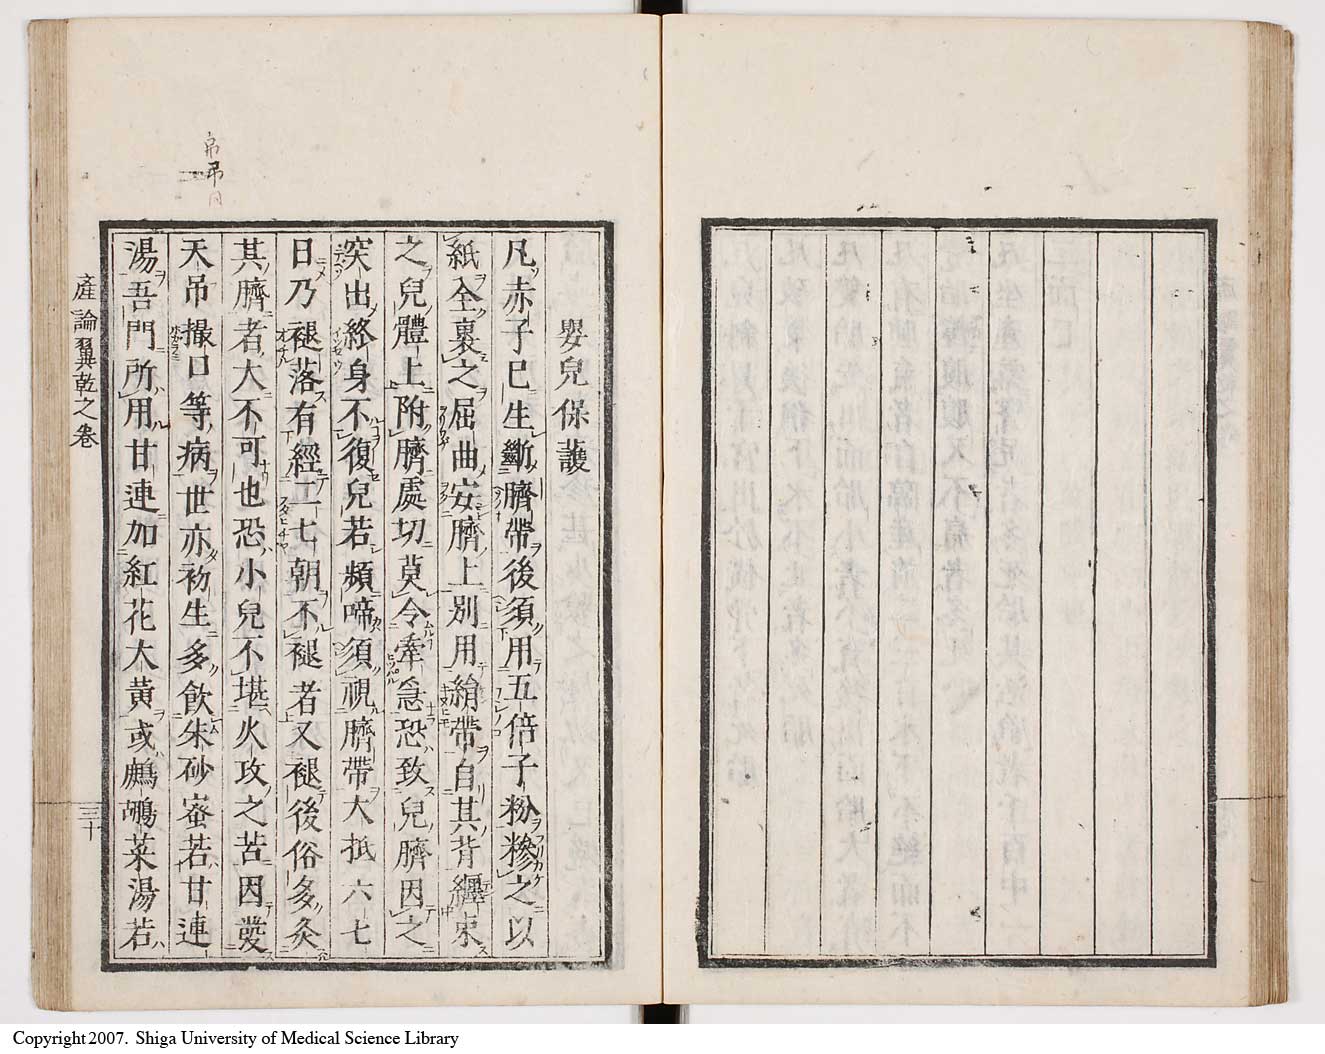 嬰兒保護
凡赤子已生斷臍帶後須用五倍子粉糝之以
紙全裹之屈曲安臍上別用絹帶自其背纏束
之兒體上附臍處切莫令牽急恐致兒臍因之
突出終身不復兒若頻啼須視臍帶大抵六七
日乃褪落有經二七朝不褪者又褪後俗多灸
其臍者大不可也恐小兒不堪火攻之苦因發
天吊撮口等病世亦初生多飲朱砂蜜若甘連
湯吾門所用甘連加紅花大黄或鷓鴣菜湯若
產論翼乾之卷
三十
Copyright 2007. Shiga University of Medical Science Library